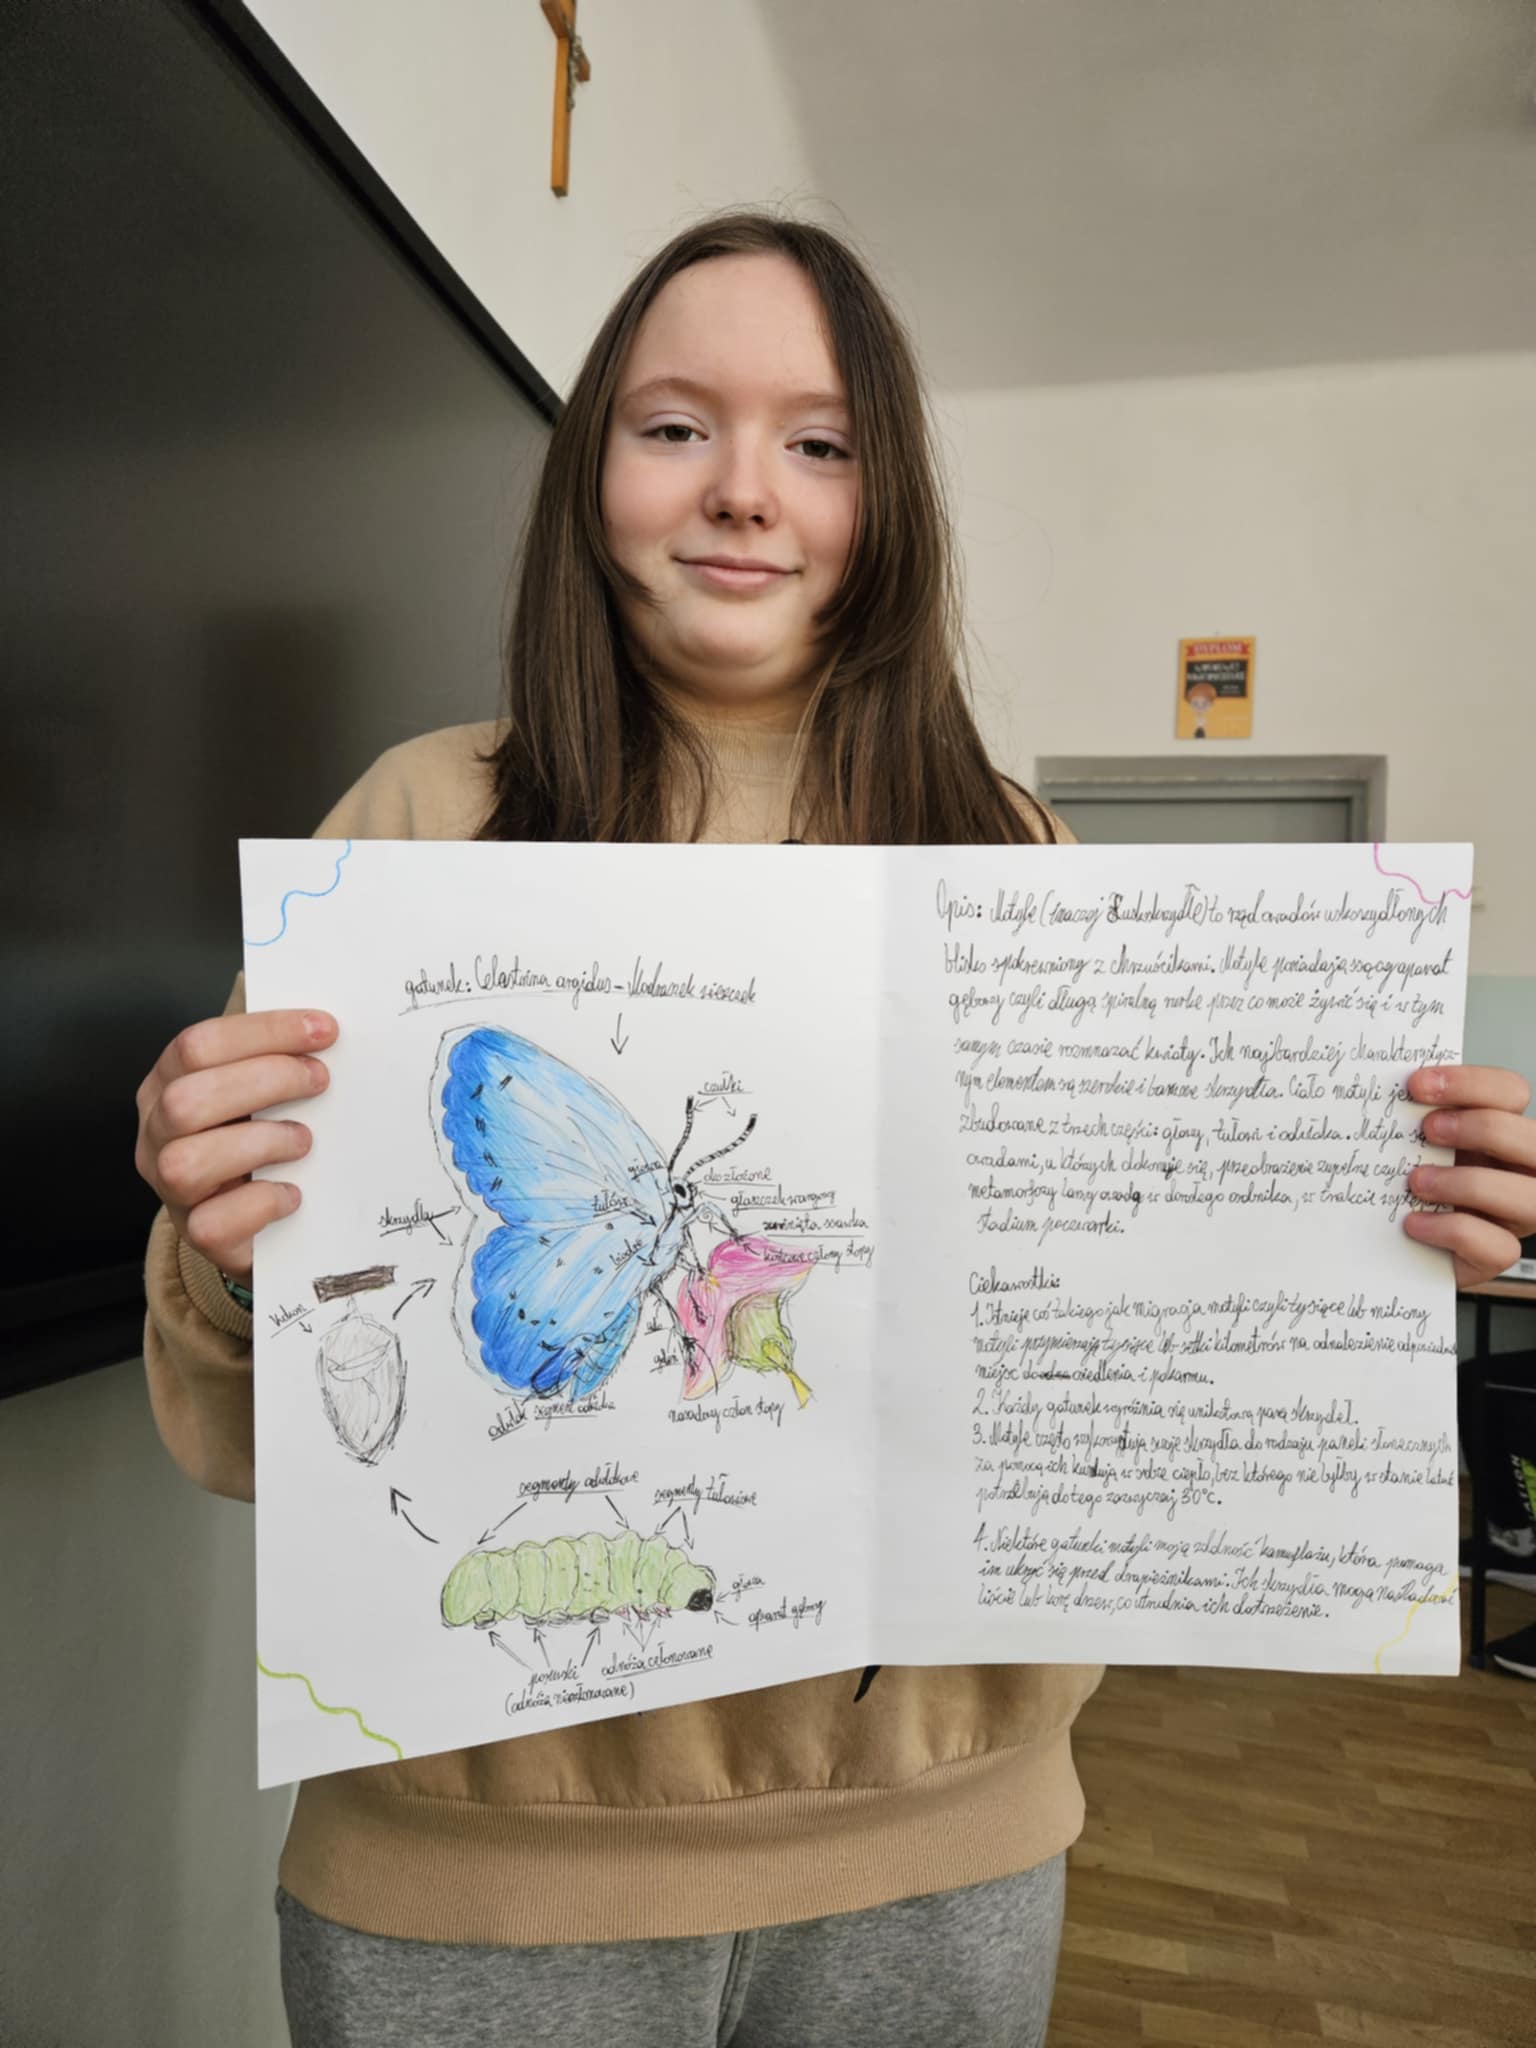 DYPLOM
gatunek: Celastrina argiolus - Modraszek wieszczek
czułki
głowa
oko złożone
głaszczek wargowy
zwinięta ssawka
końcowe człony stopy
tułów
biodro
skrzydła
udo
goleń
nasadowy człon stopy
odwłok
segment odwłoka
kokon
segmenty odwłokowe
segmenty tułowiowe
głowa
aparat gębowy
posuwki
odnóża członowane
(odnóża nieczłonowane)
Opis: Motyle (inaczej Łuskoskrzydłe) to rząd owadów uskrzydlonych
blisko spokrewniony z chruścikami. Motyle posiadają ssący aparat
gębowy czyli długą spiralną rurkę przez co może żywić się i w tym
samym czasie rozmnażać kwiaty. Ich najbardziej charakterystycz-
nym elementem są szerokie i barwne skrzydła. Ciało motyli
zbudowane z trzech części: głowy, tułowi i odwłoka. Motyle są
owadami, u których dokonuje się, przeobrażenie zupełne czyli
metamorfozy larwy owada w dorosłego osobnika, w trakcie
stadium poczwarki.
Ciekawostki:
1. Istnieje coś takiego jak migracja motyli czyli tysiące lub miliony
motyli przymierzają tysiące lub setki kilometrów na odnalezienie
miejsc do osiedlenia i pokarmu.
2. Każdy gatunek wyróżnia się unikatową parą skrzydeł.
3. Motyle często wykorzystują swoje skrzydła do rodzaju paneli słonecznych
za pomocą ich kumulują w sobie ciepło, bez którego nie byłby w stanie latać
potrzebują do tego zazwyczaj 30°C.
4. Niektóre gatunki motyli mają zdolność kamuflażu, która pomaga
im ukryć się przed drapieżnikami. Ich skrzydła mogą naśladować
liście lub korę drzew, co utrudnia ich dostrzeżenie.